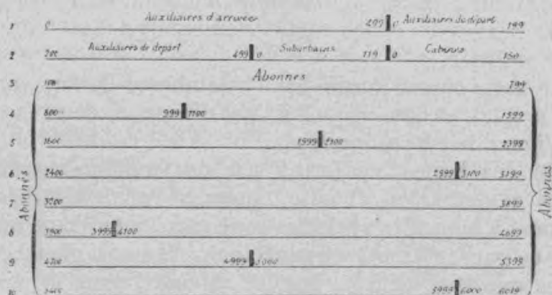 1 0 Auxiliaires d'arrivée 499 0 Auxiliaires de départ 199
2 200 Auxiliaires de départ 499 0 Suburbains 119 0 Cabines 150
3 Abonnés 799
4 800 999 1100 1599
5 1600 1999 2100 2399
6 2400 2999 3100 3199
7 3200 3899
8 3900 3999 4100 4699
9 4700 4999 5399
10 5400 5999 6000
Abonnés
Abonnés